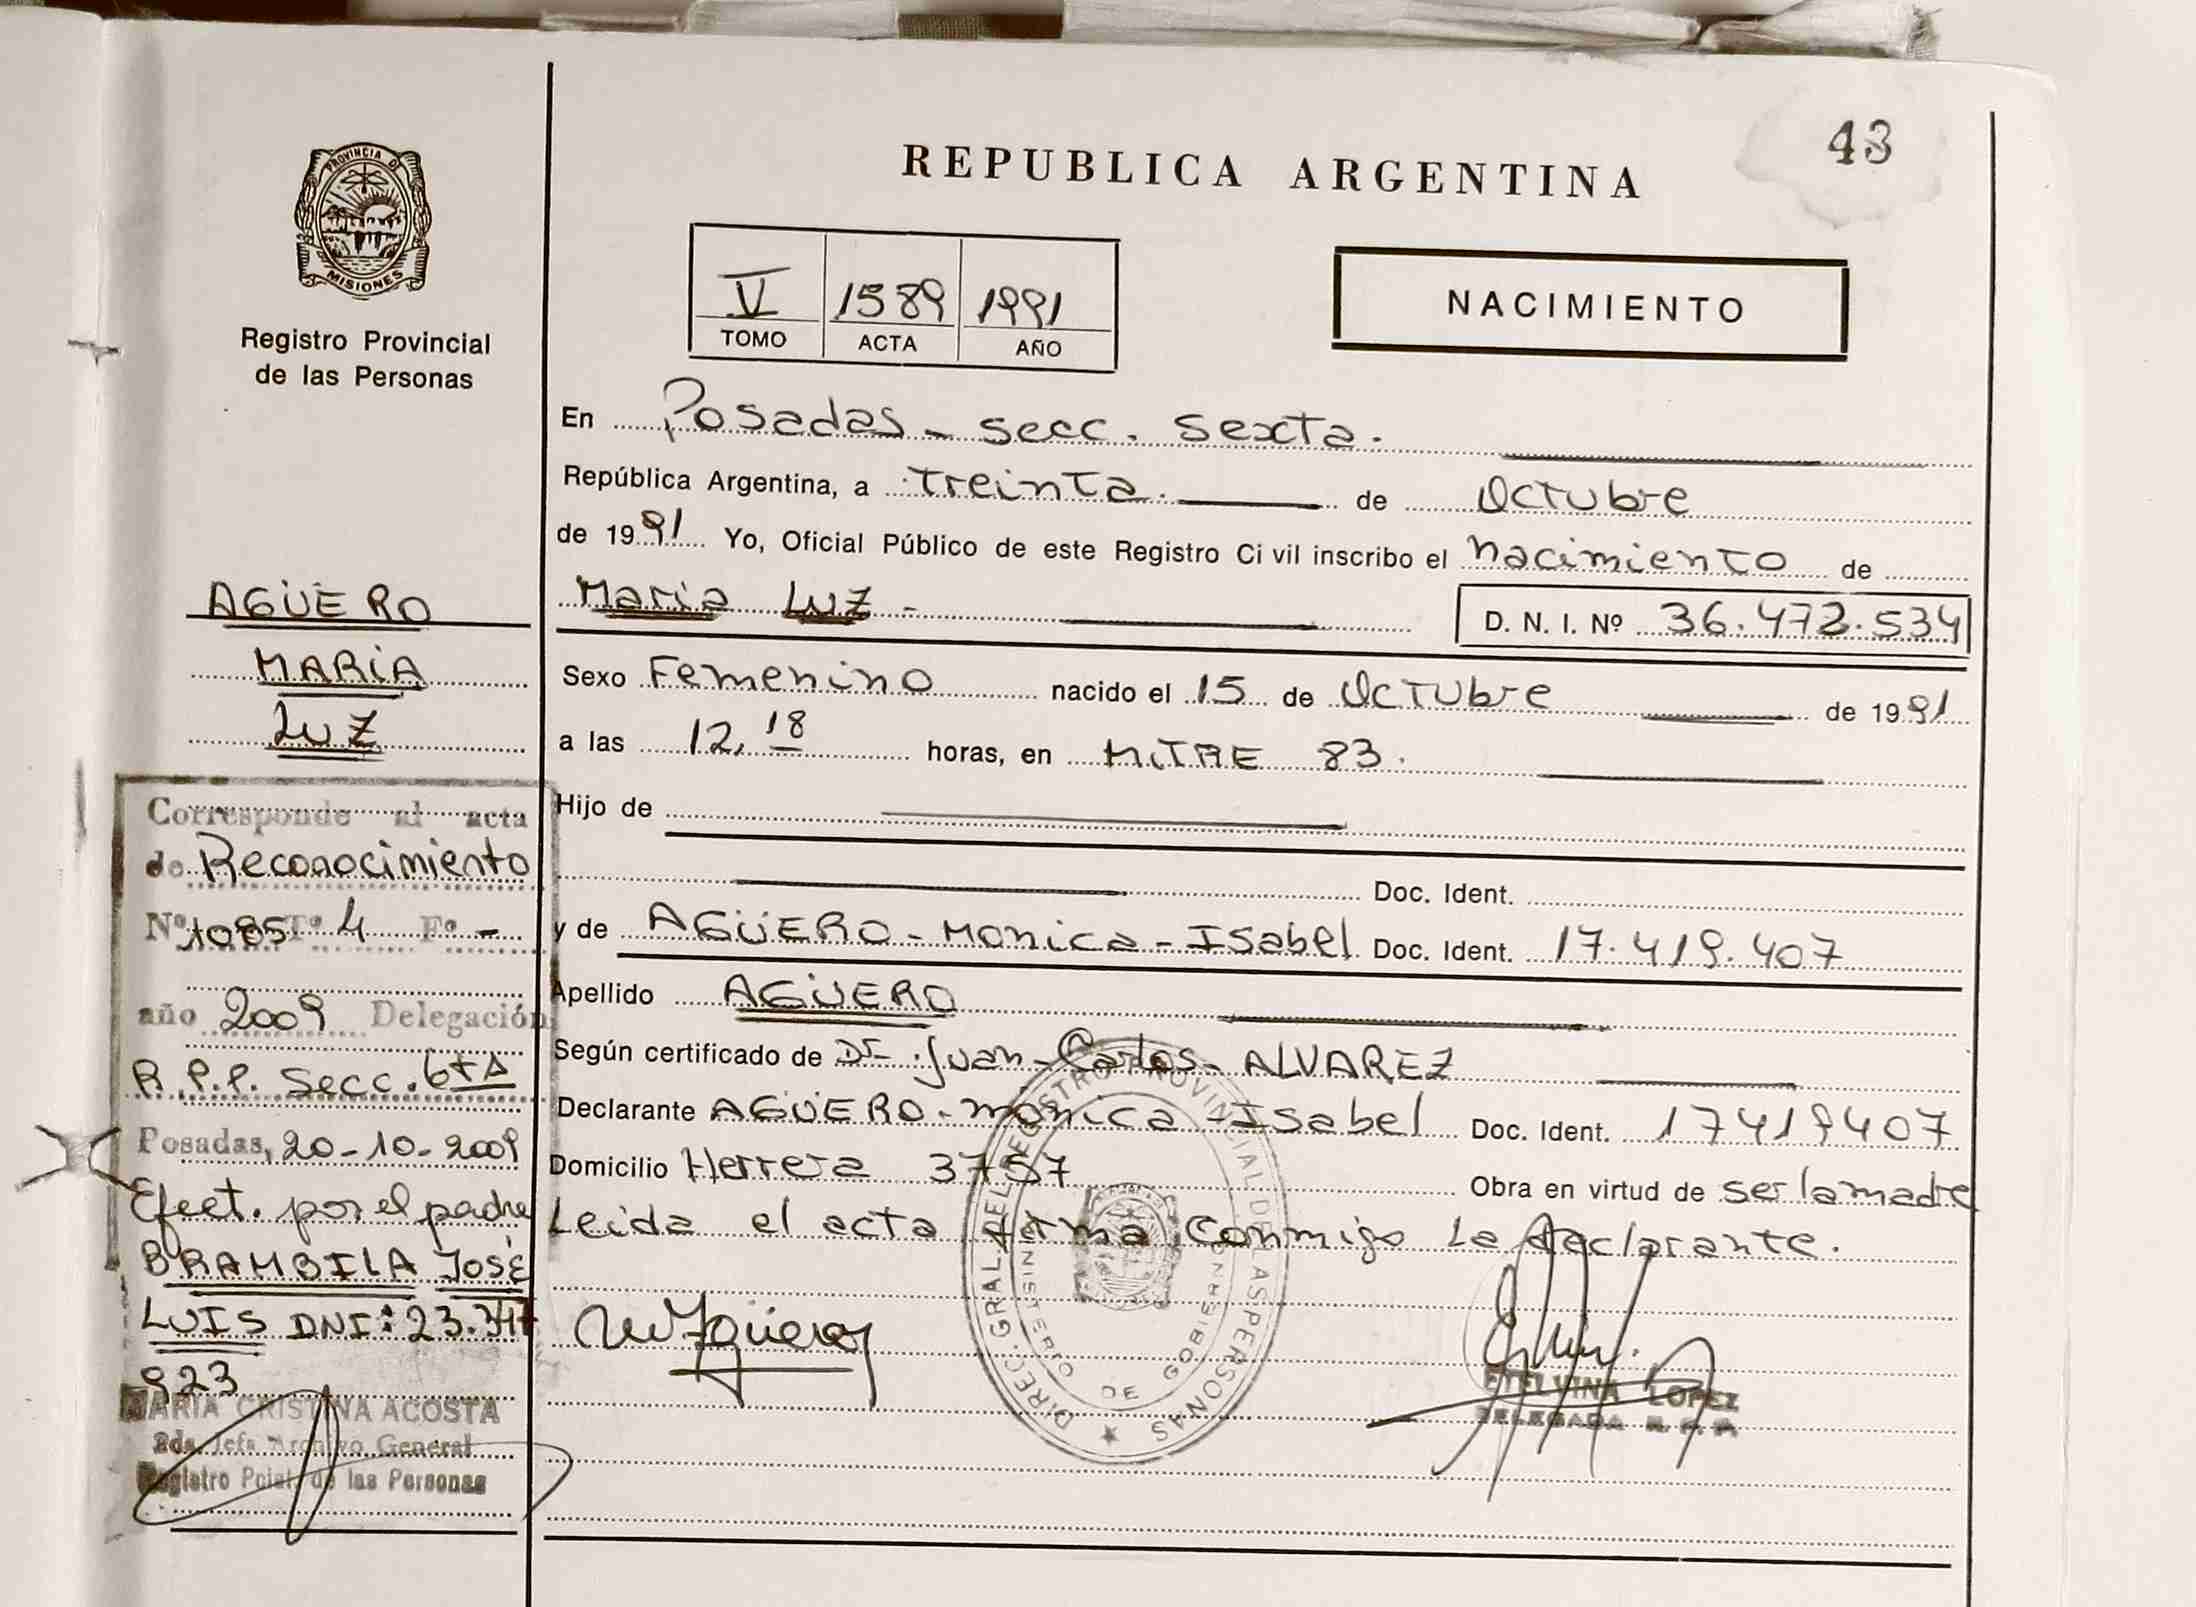 43
REPUBLICA ARGENTINA
PROVINCIA DE
MISIONES
Registro Provincial
de las Personas
V 1589 1991
TOMO ACTA AÑO
NACIMIENTO
En Posadas - secc. sexta.
República Argentina, a treinta. de Octubre
de 1991 Yo, Oficial Público de este Registro Ci vil inscribo el nacimiento de
Maria Luz - D. N. I. Nº 36.472.534
Sexo Femenino nacido el 15 de Octubre de 1991
a las 12,18 horas, en MiTRE 83.
Hijo de
Doc. Ident.
y de AGÜERO - Monica - Isabel Doc. Ident. 17.419.407
Apellido AGÜERO
Según certificado de Dr. Juan - Carlos - ALVAREZ
Declarante AGÜERO - monica - Isabel Doc. Ident. 17419407
Domicilio Herrera 3757 Obra en virtud de ser la madre
Leida el acta firma conmigo la declarante.
MAgüero
DIREC. GRAL DEL REGISTRO PROVINCIAL DE LAS PERSONAS
MINISTERIO DE GOBIERNO
ETELVINA LOPEZ
DELEGADA R. P. P.
AGÜERO
MARiA
LUZ
Corresponde al acta
de Reconocimiento
Nº 1085 Tº 4 Fº -
año 2009 Delegación
R.P.P. Secc. 6tA
Posadas, 20-10-2009
Efect. por el padre
BRAMBILA JOSÉ
LUIS DNI: 23.
923
MARIA CRISTINA ACOSTA
2da. Jefa Archivo General
Registro Pcial. de las Personas